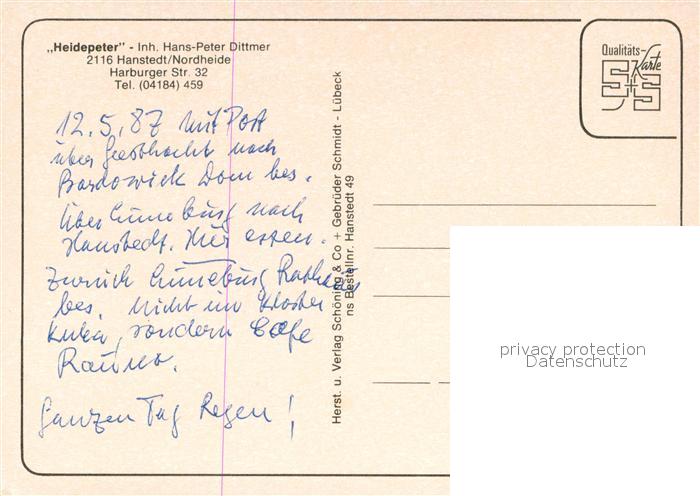 „Heidepeter" - Inh. Hans-Peter Dittmer
2116 Hanstedt/Nordheide
Harburger Str. 32
Tel. (04184) 459
Qualitäts-
Karte
S+S
12.5.87 mit Post
über Geesthacht nach
Bardowick Dom bes.
über Lüneburg nach
Hanstedt. Hier essen.
Zurück Lüneburg Rathaus
bes. Nicht im Kloster
sondern Cafe
Ganzen Tag Regen!
Herst. u. Verlag Schöning & Co + Gebrüder Schmidt - Lübeck
ns Bestellnr. Hanstedt 49
privacy protection
Datenschutz